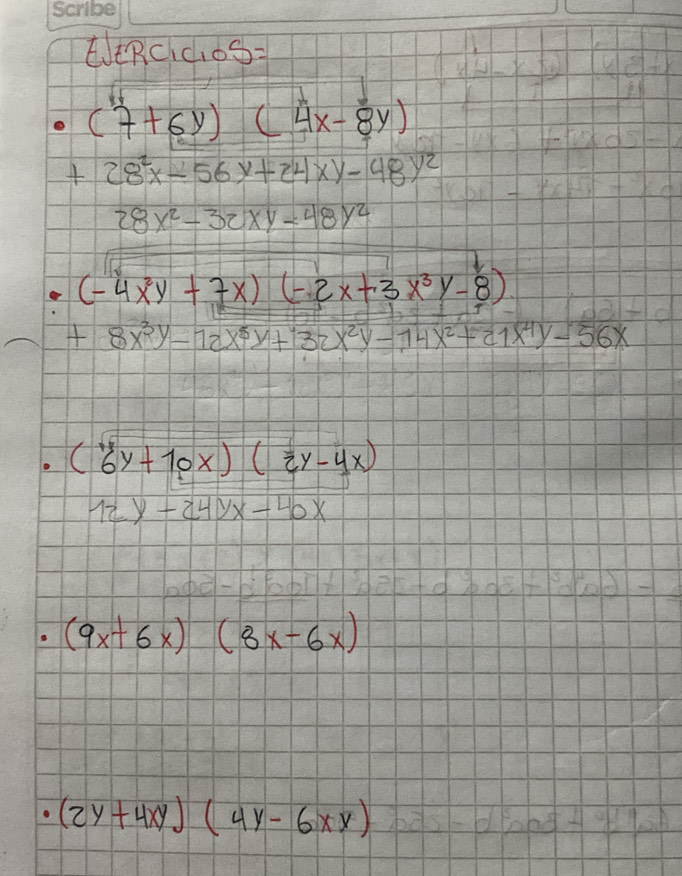 Scribe
EJERCICIOS=
• (7+6y) (4x-8y)
+ 28²x-56y+24xy-48y²
28x²-32xy-48y²
• (-4x²y+7x) (-2x+3x³y-8)
+ 8x³y-12x⁵y+32x²y-14x²+21x⁴y-56x
• (6y+10x) (2y-4x)
12y-24yx-40x
• (9x+6x) (8x-6x)
• (2y+4xy) (4y-6xy)